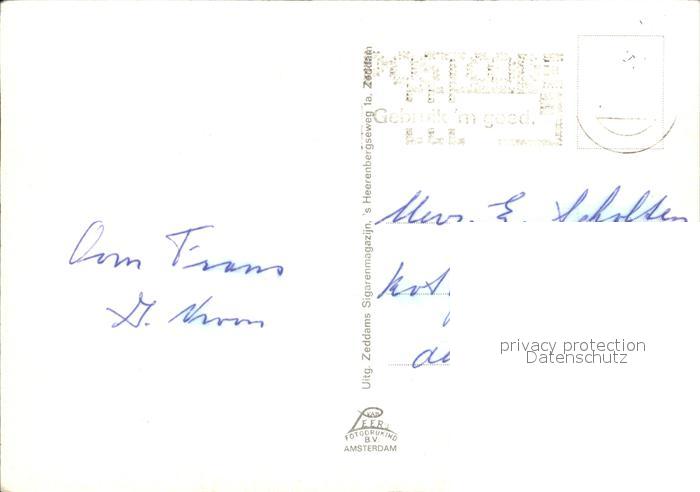 Oom Frans
Uitg. Zeddams Sigarenmagazijn, 's Heerenbergseweg 1a, Zeddam
POSTCODE
Gebruik 'm goed.
Mevr. E. Scholten
privacy protection
Datenschutz
VAN
LEER
FOTODRUKIND
B.V.
AMSTERDAM